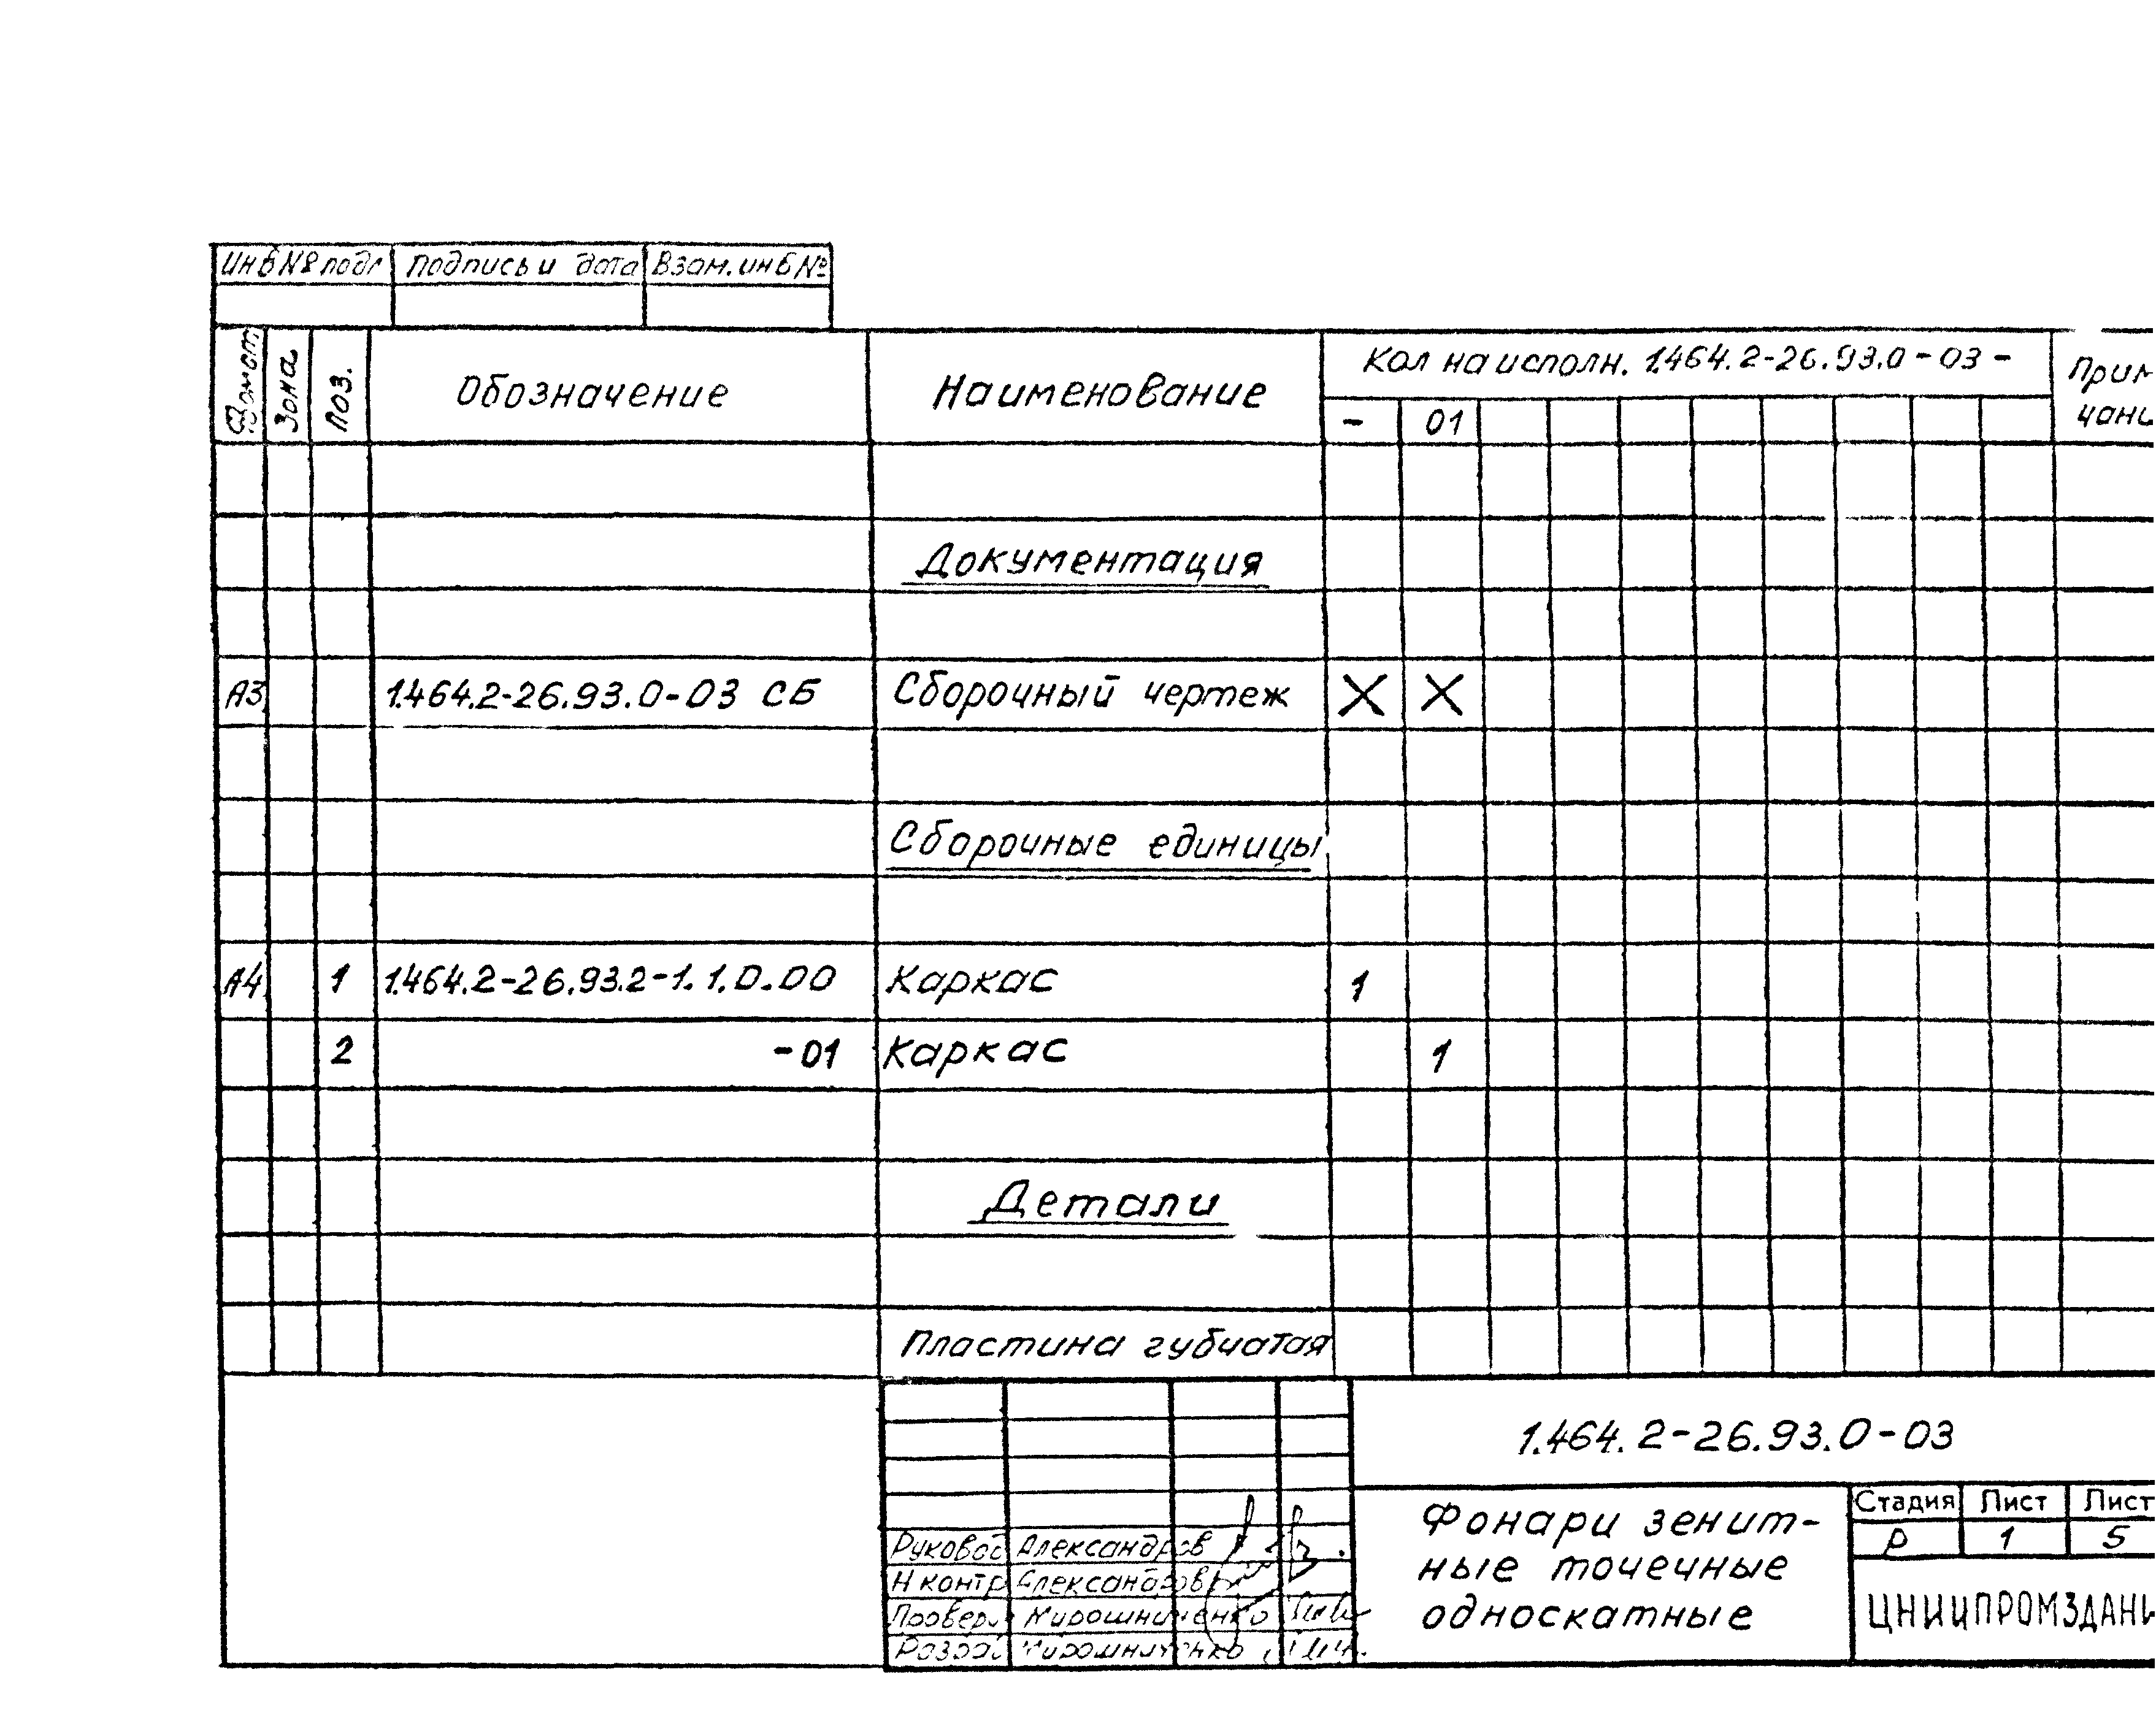 Инв № подл Подпись и дата Взам. инв №
Формат Зона Поз. Обозначение Наименование Кол на исполн. 1.464.2-26.93.0-03-
- 01
Документация
А3 1.464.2-26.93.0-03 СБ Сборочный чертеж X X
Сборочные единицы
А4 1 1.464.2-26.93.2-1.1.0.00 Каркас 1
2 -01 Каркас 1
Детали
Пластина губчатая
1.464.2-26.93.0-03
Фонари зенит-
ные точечные
односкатные
Стадия Лист Лист
Р 1 5
ЦНИИПРОМЗДАНИ
Руковод Александров
Н контр Александров
Провери Мирошниченко
Разраб Мирошниченко